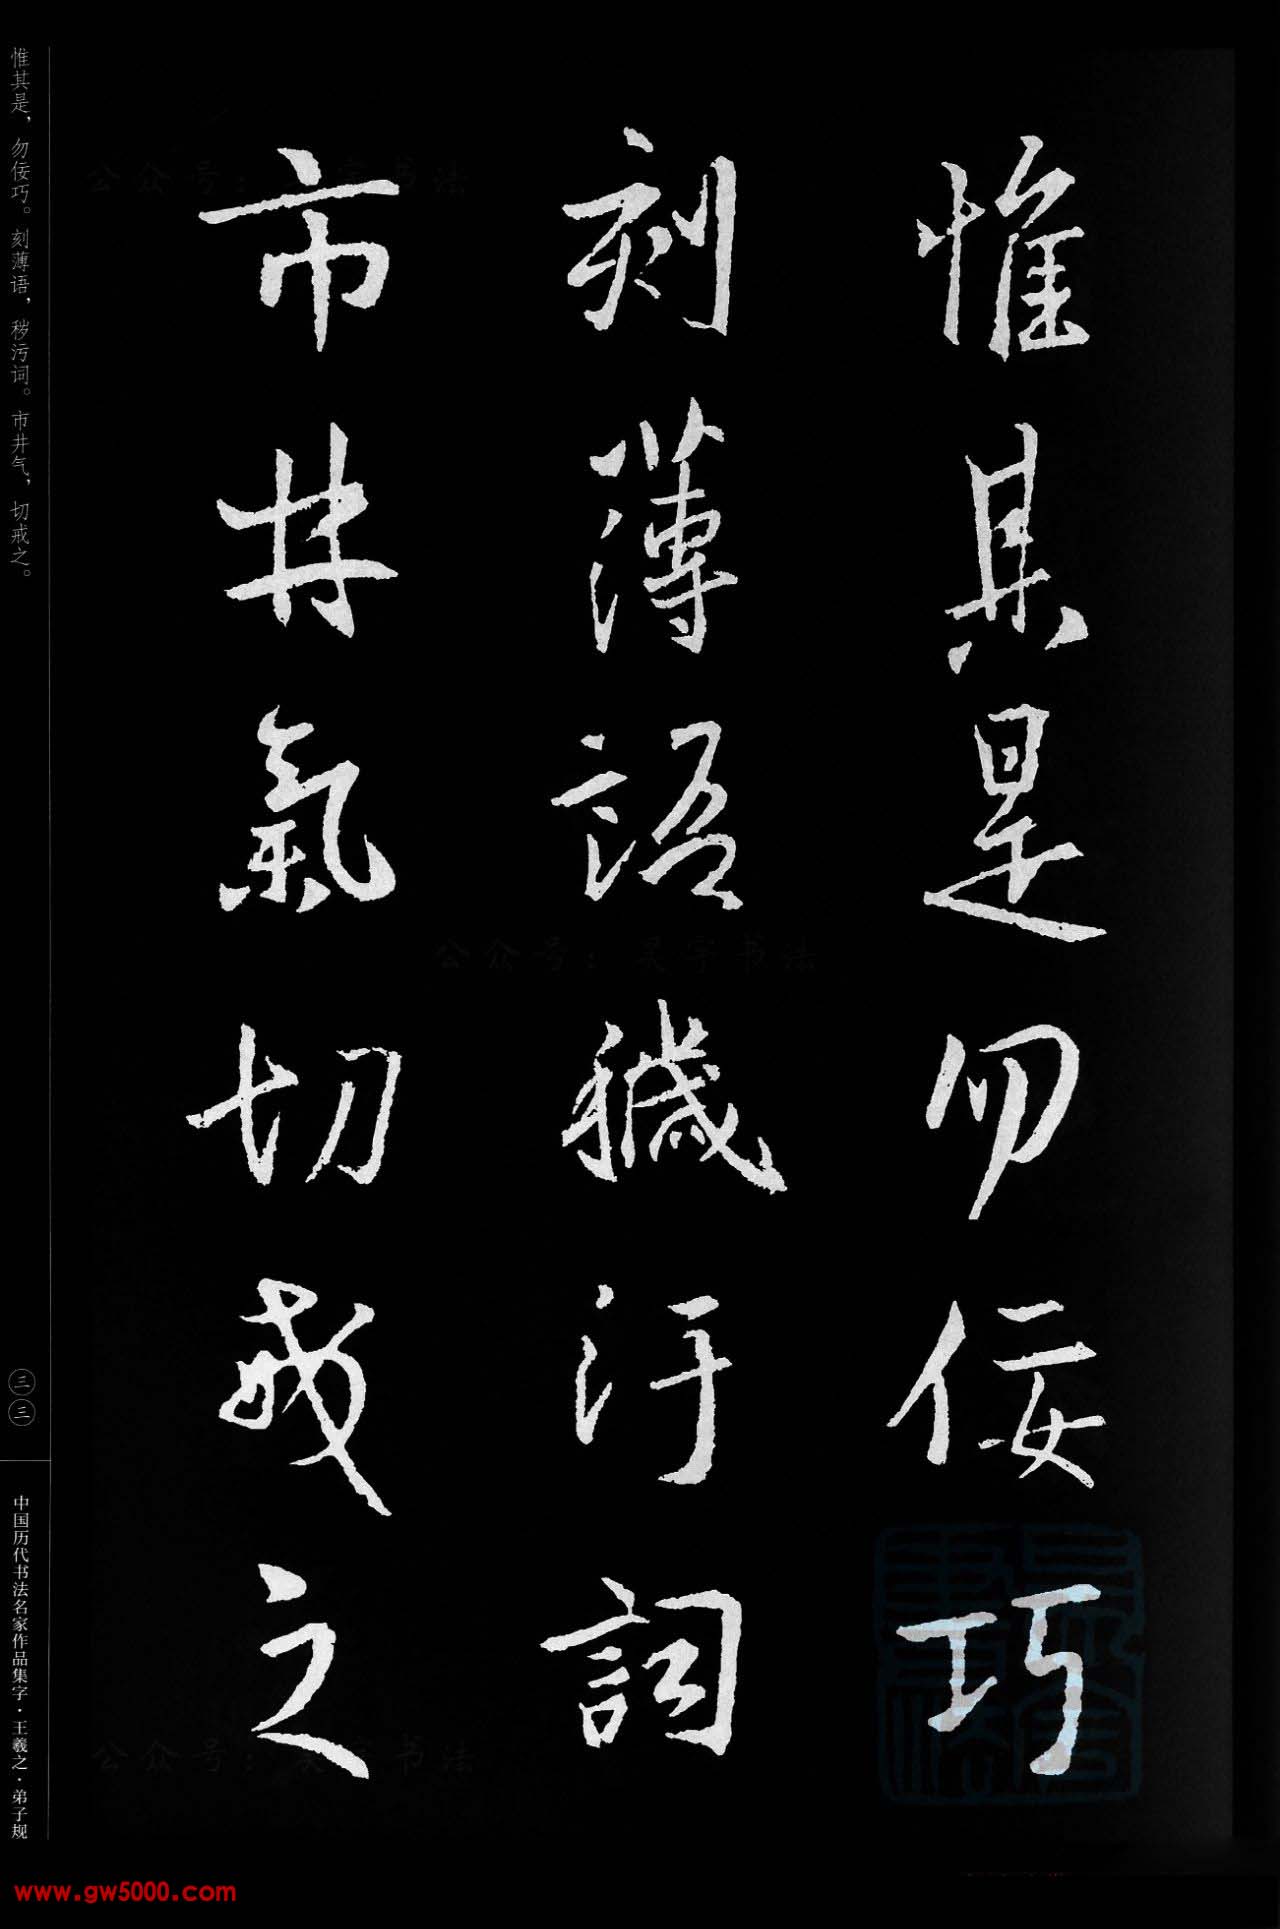 惟其是勿佞巧
刻薄語穢汙詞
市井氣切戒之
惟其是，勿佞巧。刻薄语，秽污词。市井气，切戒之。
三三
中国历代书法名家作品集字·王羲之·弟子规
公众号：吴宇书法
公众号：吴宇书法
公众号：吴宇书法
www.gw5000.com